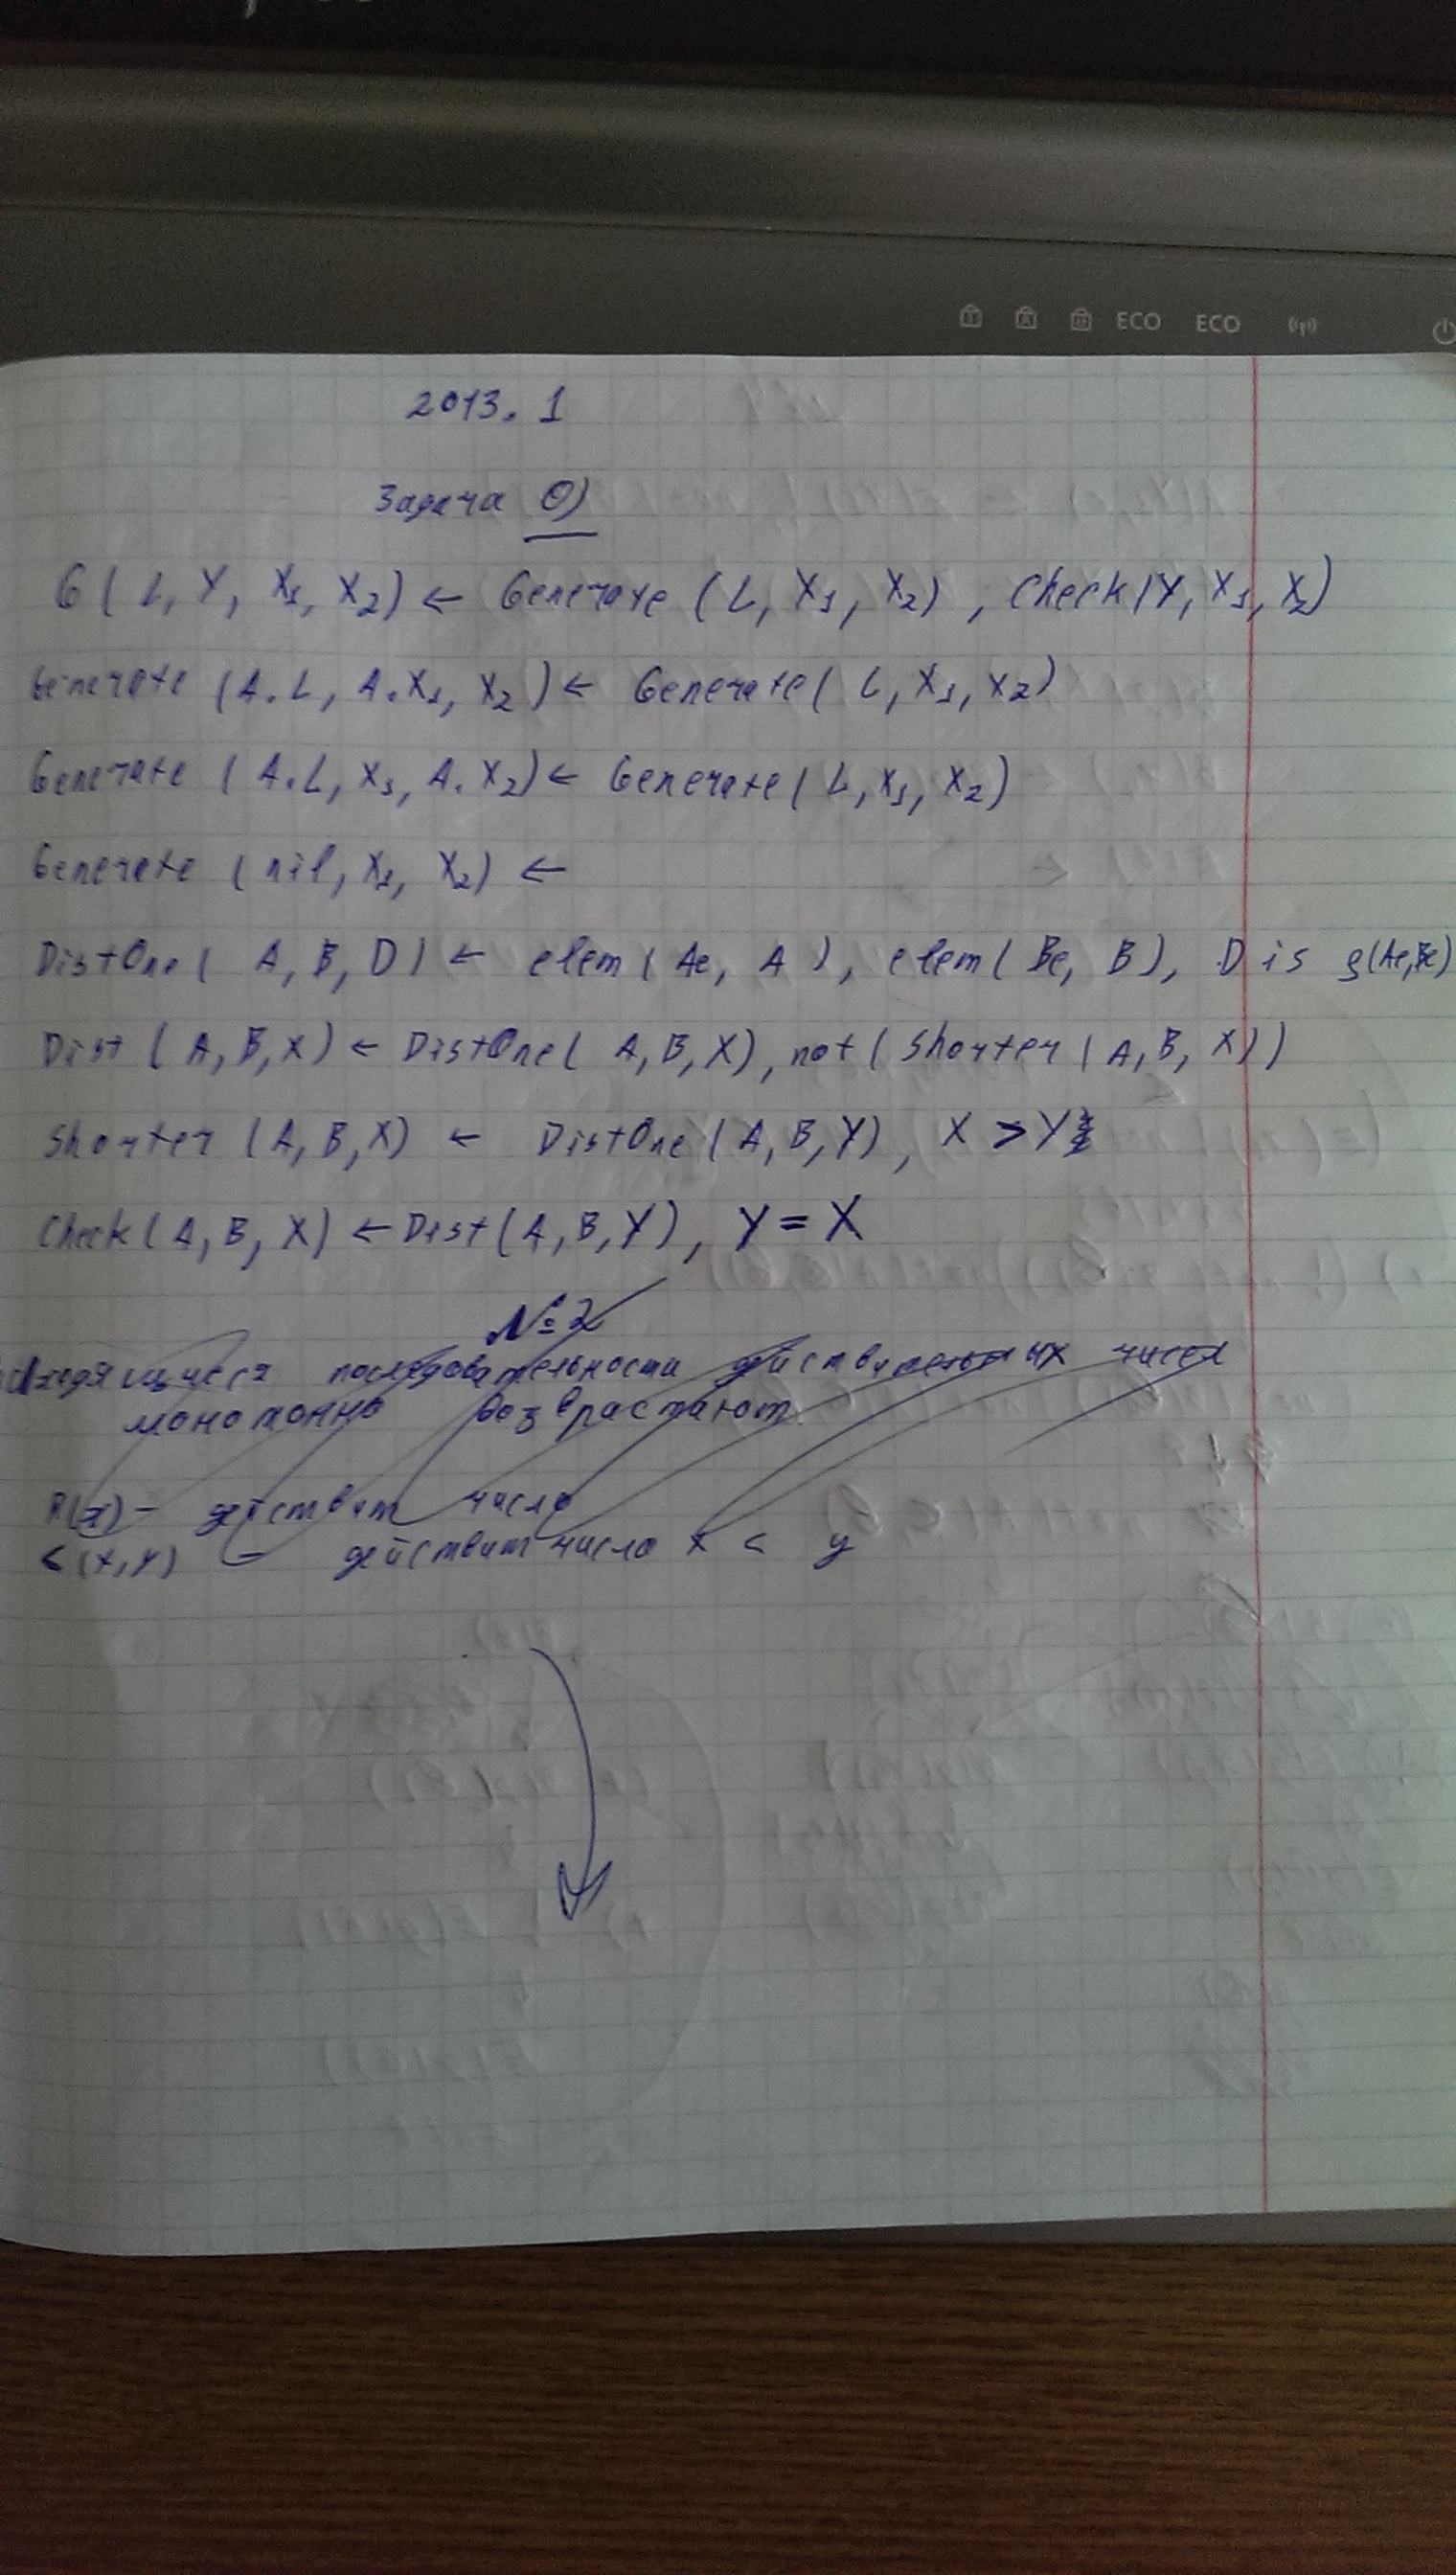 ECO ECO
2013. 1
Задача 0)
G(L, Y, X₁, X₂) ← Generate (L, X₁, X₂), Check(Y, X₁, X₂)
Generate (A.L, A.X₁, X₂) ← Generate(L, X₁, X₂)
Generate (A.L, X₁, A.X₂) ← Generate(L, X₁, X₂)
Generate (nil, X₁, X₂) ←
DistOne(A, B, D) ← elem(Ae, A), elem(Be, B), D is ρ(Ae,Be)
Dist (A, B, X) ← DistOne(A, B, X), not(Shorter(A, B, X))
Shorter (A, B, X) ← DistOne(A, B, Y), X > Y
Check(A, B, X) ← Dist(A, B, Y), Y = X
№2
последовательности действительных чисел
монотонно возврастают.
R(x) – действит число
<(x,y) – действит число x < y